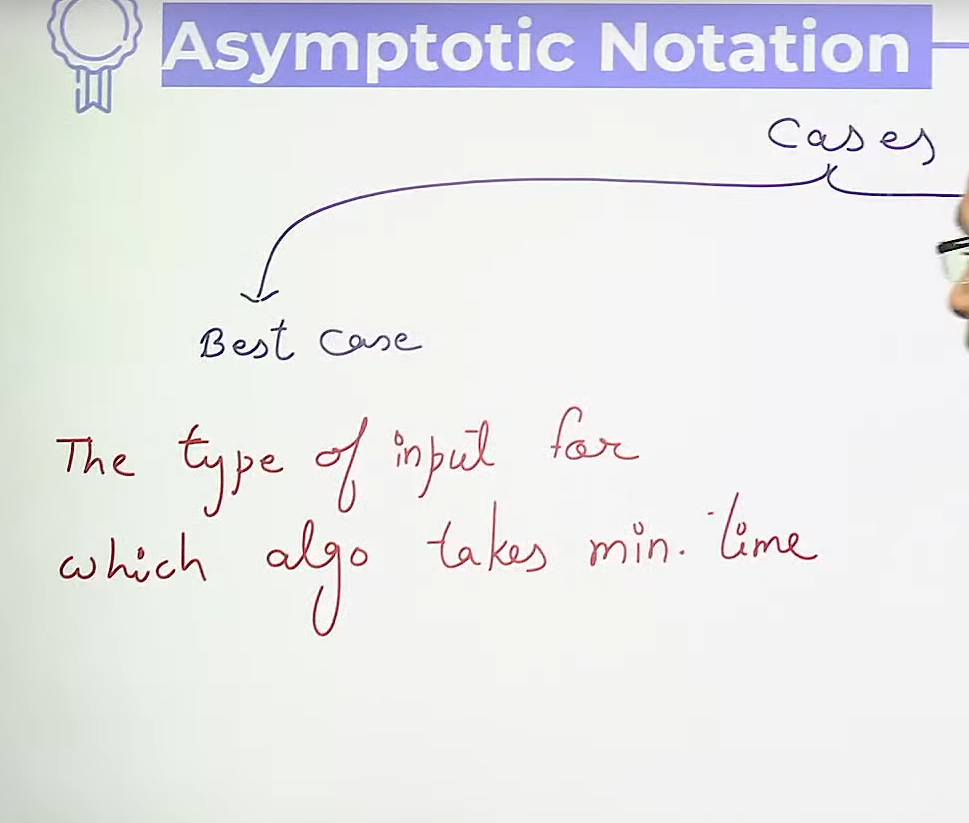 Asymptotic Notation
Cases
Best Case
The type of input for
which algo takes min. time